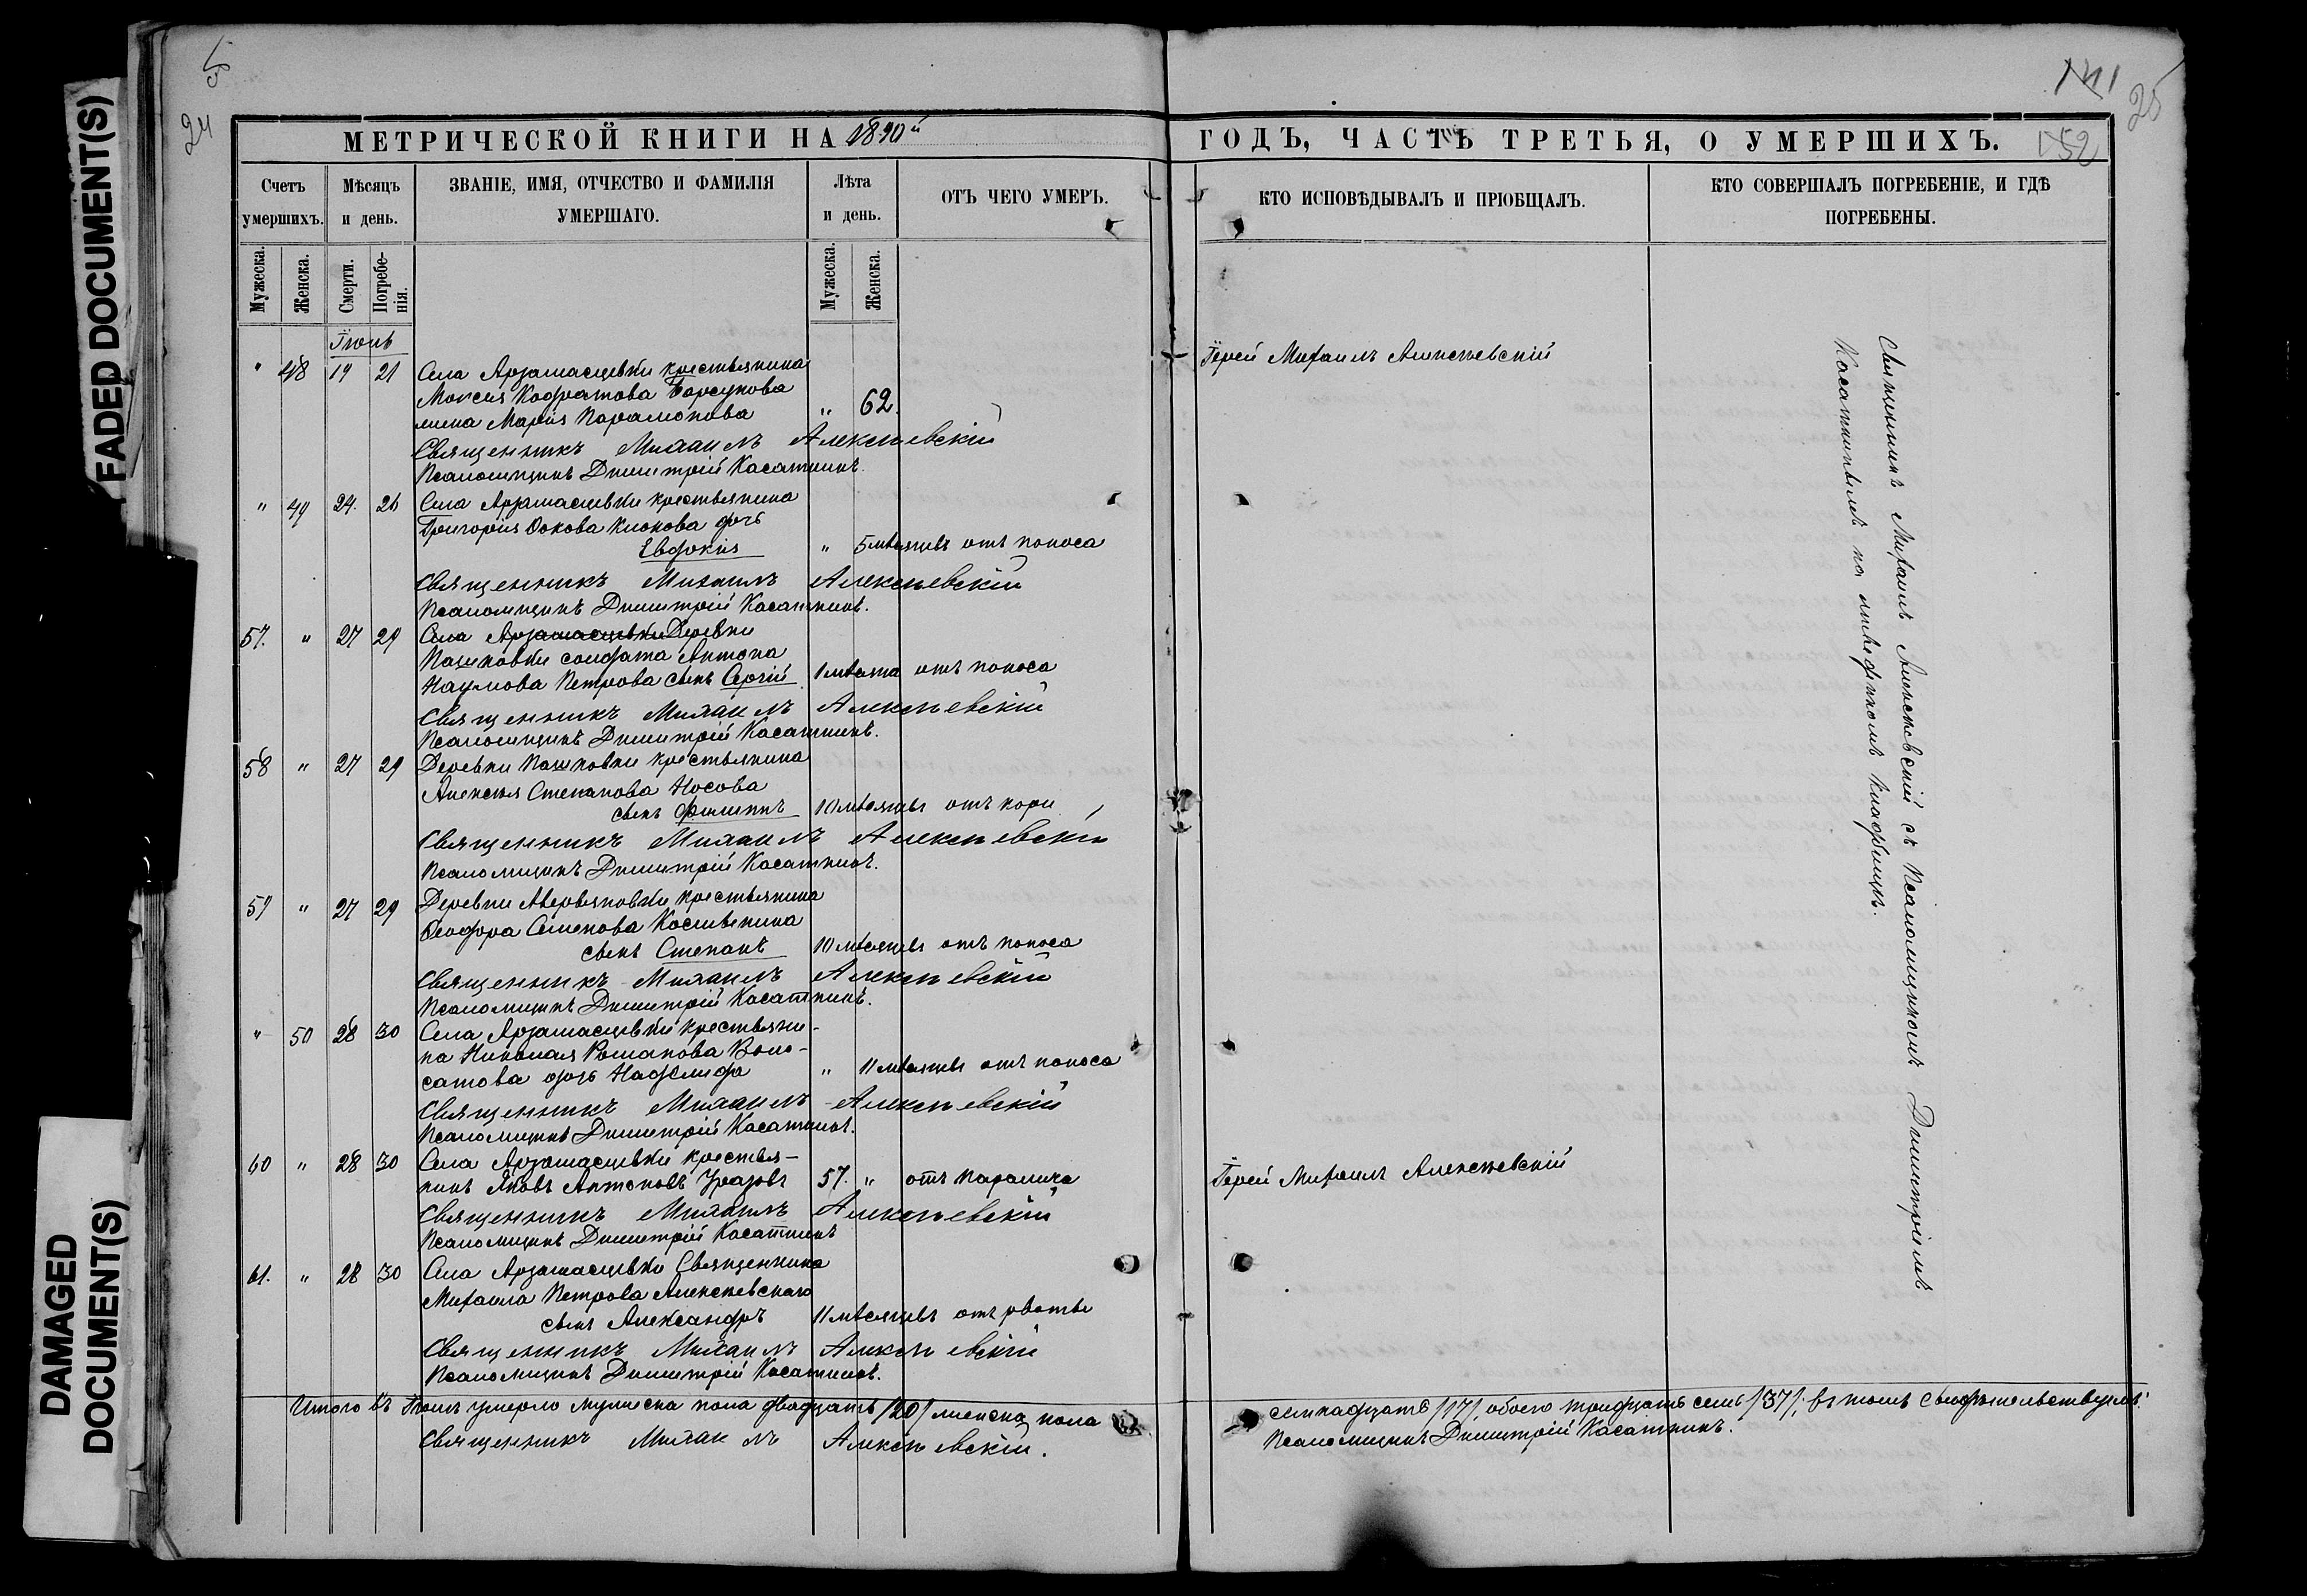 FADED DOCUMENT(S)
DAMAGED
DOCUMENT(S)
24
25
152
МЕТРИЧЕСКОЙ КНИГИ НА 1890й
ГОДЪ, ЧАСТЬ ТРЕТЬЯ, О УМЕРШИХЪ.
Счетъ умершихъ.
Мѣсяцъ и день.
ЗВАНІЕ, ИМЯ, ОТЧЕСТВО И ФАМИЛІЯ УМЕРШАГО.
Лѣта и день.
ОТЪ ЧЕГО УМЕРЪ.
КТО ИСПОВѢДЫВАЛЪ И ПРІОБЩАЛЪ.
КТО СОВЕРШАЛЪ ПОГРЕБЕНІЕ, И ГДѢ ПОГРЕБЕНЫ.
Мужеска.
Женска.
Смерти.
Погребе-
нія.
Мужеска.
Женска.
Іюнь
" 48 19 21 Села Арзамасцевки крестьянина
Моксея Кодратова Борсукова
жена Марія Парамонова " 62.
Іерей Михаилъ Алексѣевскій
Священникъ Михаилъ Алексѣевскій
Псаломщикъ Димитрій Касаткинъ.
" 49 24. 26 Села Арзамасцевки крестьянина
Григорія Оокова Клокова дочь
Евдокія " 5 мѣсяцевъ отъ поноса
Священникъ Михаилъ Алексѣевскій
Псаломщикъ Димитрій Касаткинъ.
57. " 27 29 Села Арзамасцевки Деревни
Пашковки солдата Антона
Наумова Петрова сынъ Сергій 1 мѣсяца отъ поноса
Священникъ Михаилъ Алексѣевскій
Псаломщикъ Димитрій Касаткинъ.
58 " 27 29 Деревни Пашковки крестьянина
Алексѣя Степанова Носова
сынъ Филиппъ 10 мѣсяцевъ отъ кори
Священникъ Михаилъ Алексѣевскій
Псаломщикъ Димитрій Касаткинъ.
59 " 27 29 Деревни Аверьяновки крестьянина
Ѳеодора Семенова Косывкина
сынъ Степанъ 10 мѣсяцевъ отъ поноса
Священникъ Михаилъ Алексѣевскій
Псаломщикъ Димитрій Касаткинъ.
" 50 28 30 Села Арзамасцевки крестьяни-
на Николая Романова Воло-
сатова дочь Надежда " 11 мѣсяцевъ отъ поноса
Священникъ Михаилъ Алексѣевскій
Псаломщикъ Димитрій Касаткинъ.
60 " 28 30 Села Арзамасцевки крестья-
нинъ Яковъ Антоновъ Уразовъ 57. " отъ паралича
Іерей Михаилъ Алексѣевскій
Священникъ Михаилъ Алексѣевскій
Псаломщикъ Димитрій Касаткинъ
61. " 28 30 Села Арзамасцевки Священника
Михаила Петрова Алексѣевскаго
сынъ Александръ 11 мѣсяцевъ отъ рвоты
Священникъ Михаилъ Алексѣевскій
Псаломщикъ Димитрій Касаткинъ.
Священникъ Михаилъ Алексѣевскій съ Псаломщикомъ Димитріемъ
Касаткинымъ на приходскомъ кладбищѣ.
Итого въ Іюнѣ умерло мужеска пола двадцать /20/ женска пола семнадцать /17/, обоего тридцать семь /37/; въ томъ свидѣтельствуемъ:
Священникъ Михаилъ Алексѣевскій. Псаломщикъ Димитрій Касаткинъ.